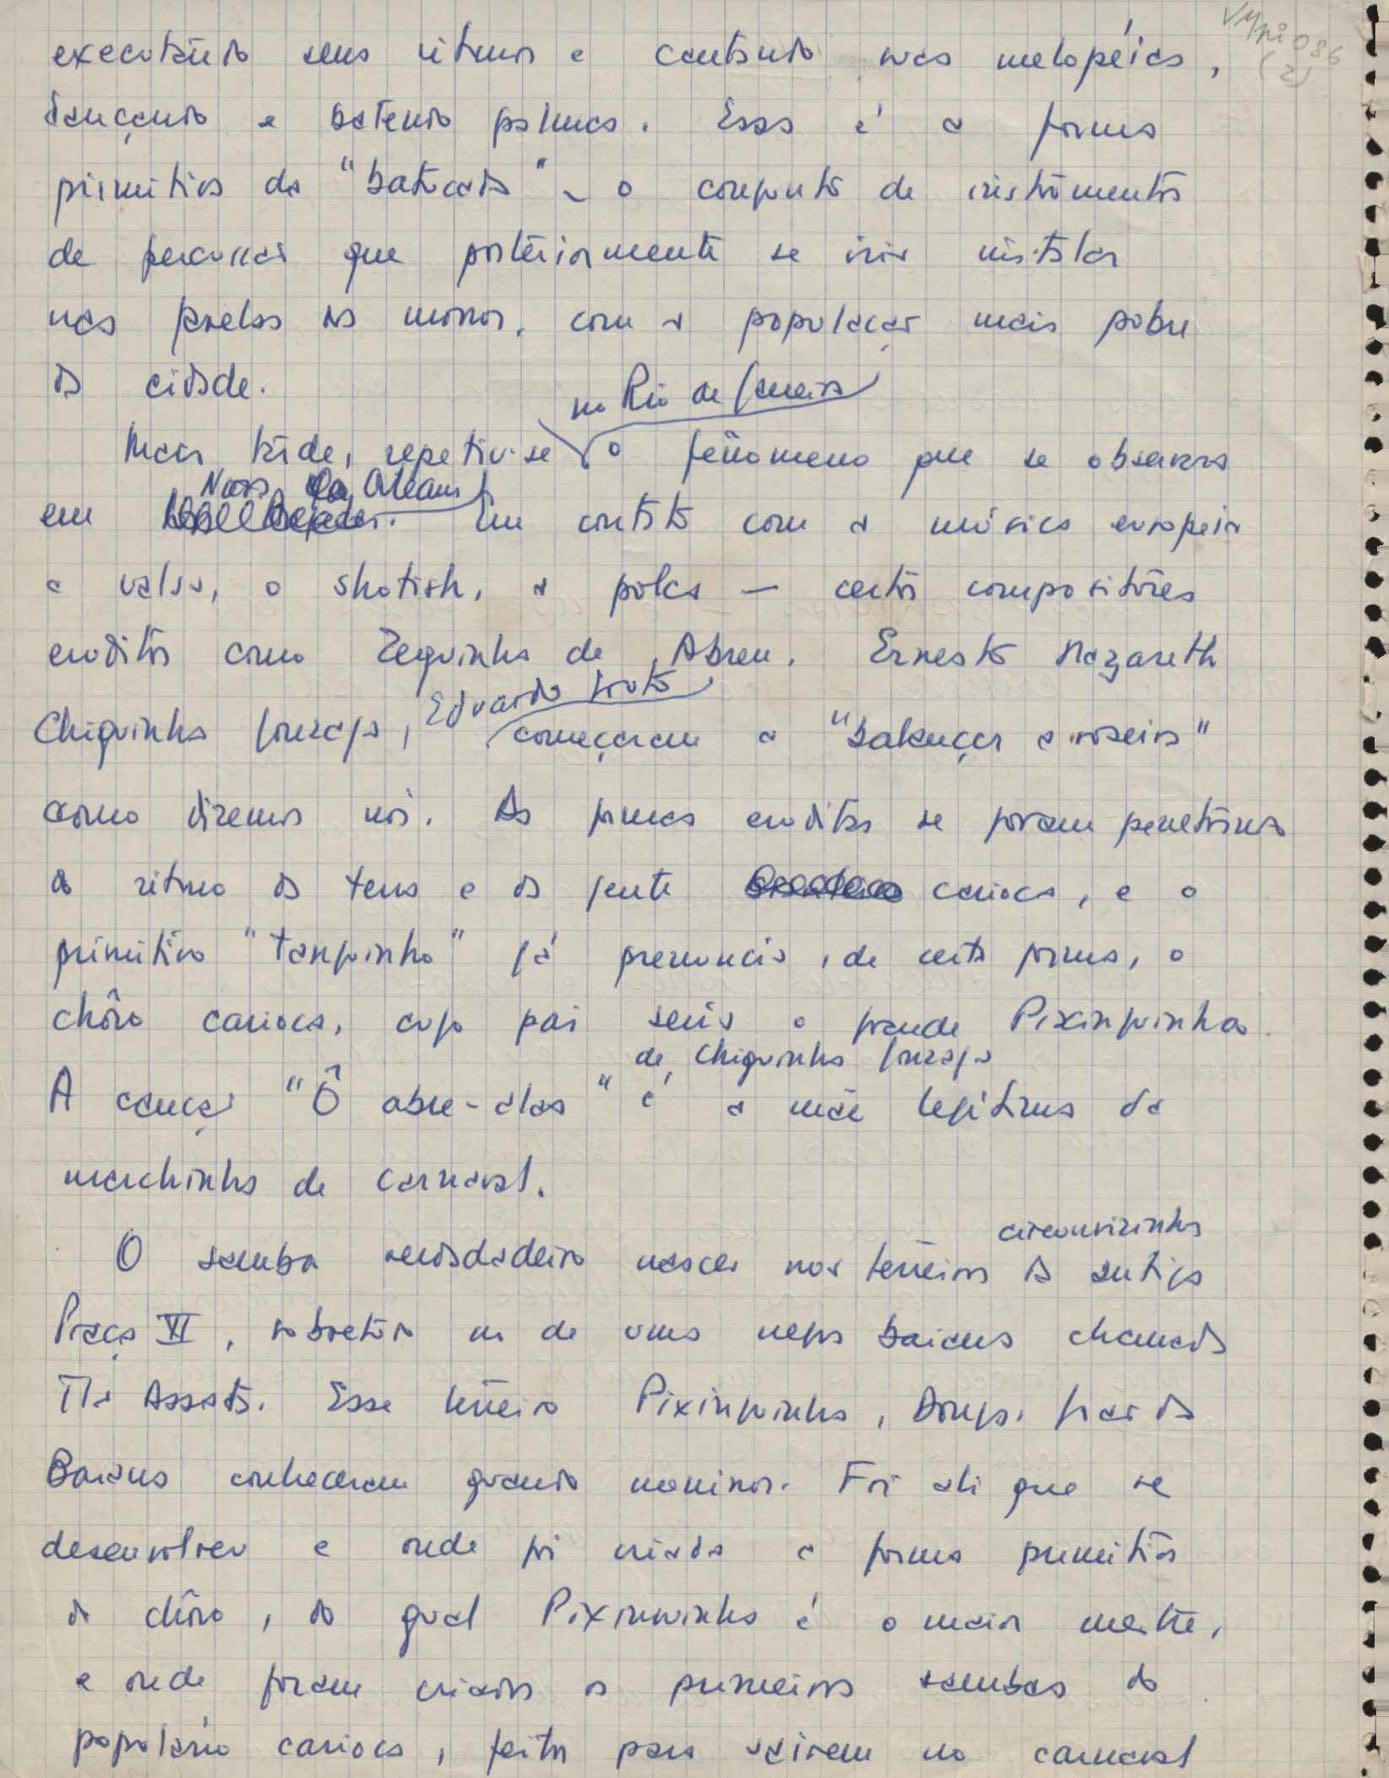 VMpi 086
(2)
executando seus ritmos e cantando suas melopéias,
dançando e batendo palmas. Essa é a forma
primitiva da "batucada" – o conjunto de instrumentos
de percussão que posteriormente se iria instalar
nas favelas dos morros, com a população mais pobre
da cidade.
no Rio de Janeiro
Mais tarde, repetiu-se o fenômeno que se observara
Nova Orleans
em Em contato com a música européia
a valsa, o shotish, a polca — certos compositores
eruditos como Zequinha de Abreu, Ernesto Nazareth
Eduardo Souto
Chiquinha Gonzaga, começaram a "balançar a roseira"
como dizemos nós. As formas eruditas se foram penetrando
do ritmo da terra e da gente carioca, e o
primitivo "tanguinho" já prenuncia, de certa forma, o
chôro carioca, cujo pai seria o grande Pixinguinha.
de Chiquinha Gonzaga
A canção "Ô abre-alas" é a mãe legítima da
marchinha de carnaval.
circunvizinhos
O samba verdadeiro nasceu nos terreiros da antiga
Praça XI, sobretudo no de uma negra baiana chamada
Tia Assata. Esse terreiro Pixinguinha, Donga, João da
Baiana conheceram quando meninos. Foi ali que se
desenvolveu e onde foi criada a forma primitiva
do chôro, do qual Pixinguinha é o maior mestre,
e onde foram criados os primeiros sambas do
populário carioca, feitos para saírem no carnaval